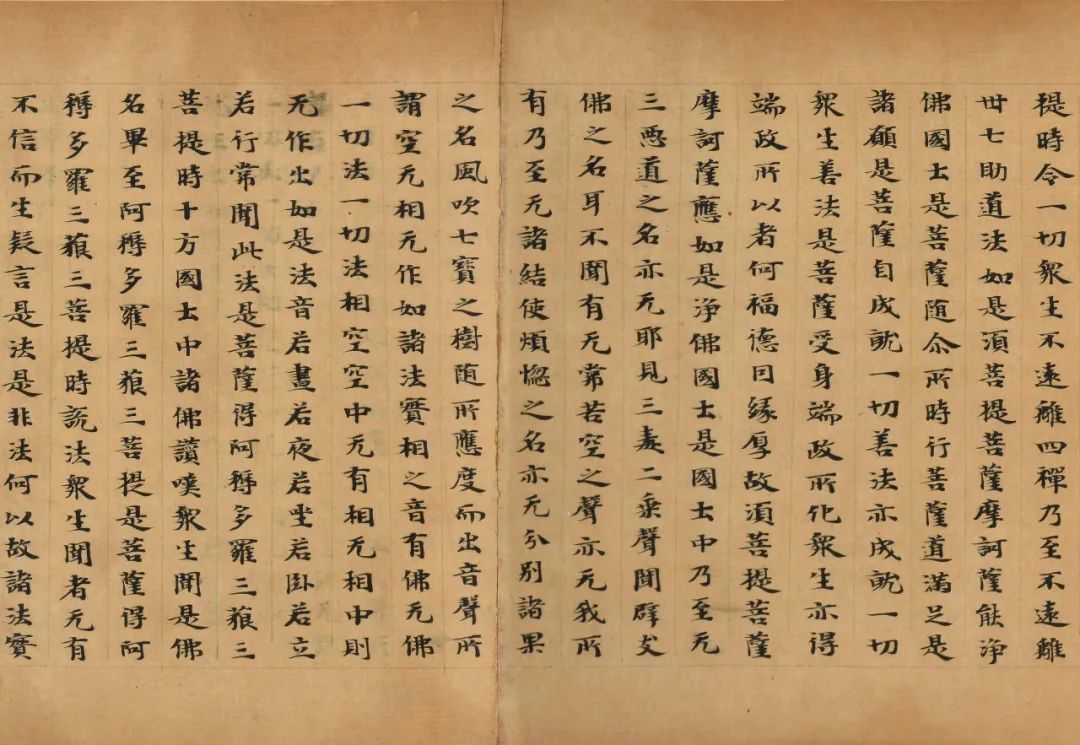 提時令一切眾生不遠離四禪乃至不遠離
卅七助道法如是須菩提菩薩摩訶薩能淨
佛國土是菩薩隨尒所時行菩薩道滿足是
諸願是菩薩自成就一切善法亦成就一切
眾生善法是菩薩受身端政所化眾生亦得
端政所以者何福德因緣厚故須菩提菩薩
摩訶薩應如是淨佛國土是國土中乃至无
三惡道之名亦无耶見三毒二乘聲聞辟支
佛之名耳不聞有无常苦空之聲亦无我所
有乃至无諸結使煩惱之名亦无分別諸果
之名風吹七寶之樹隨所應度而出音聲所
謂空无相无作如諸法實相之音有佛无佛
一切法一切法相空空中无有相无相中則
无作出如是法音若晝若夜若坐若臥若立
若行常聞此法是菩薩得阿耨多羅三藐三
菩提時十方國土中諸佛讚嘆眾生聞是佛
名畢至阿耨多羅三藐三菩提是菩薩得阿
耨多羅三藐三菩提時說法眾生聞者无有
不信而生疑言是法是非法何以故諸法實